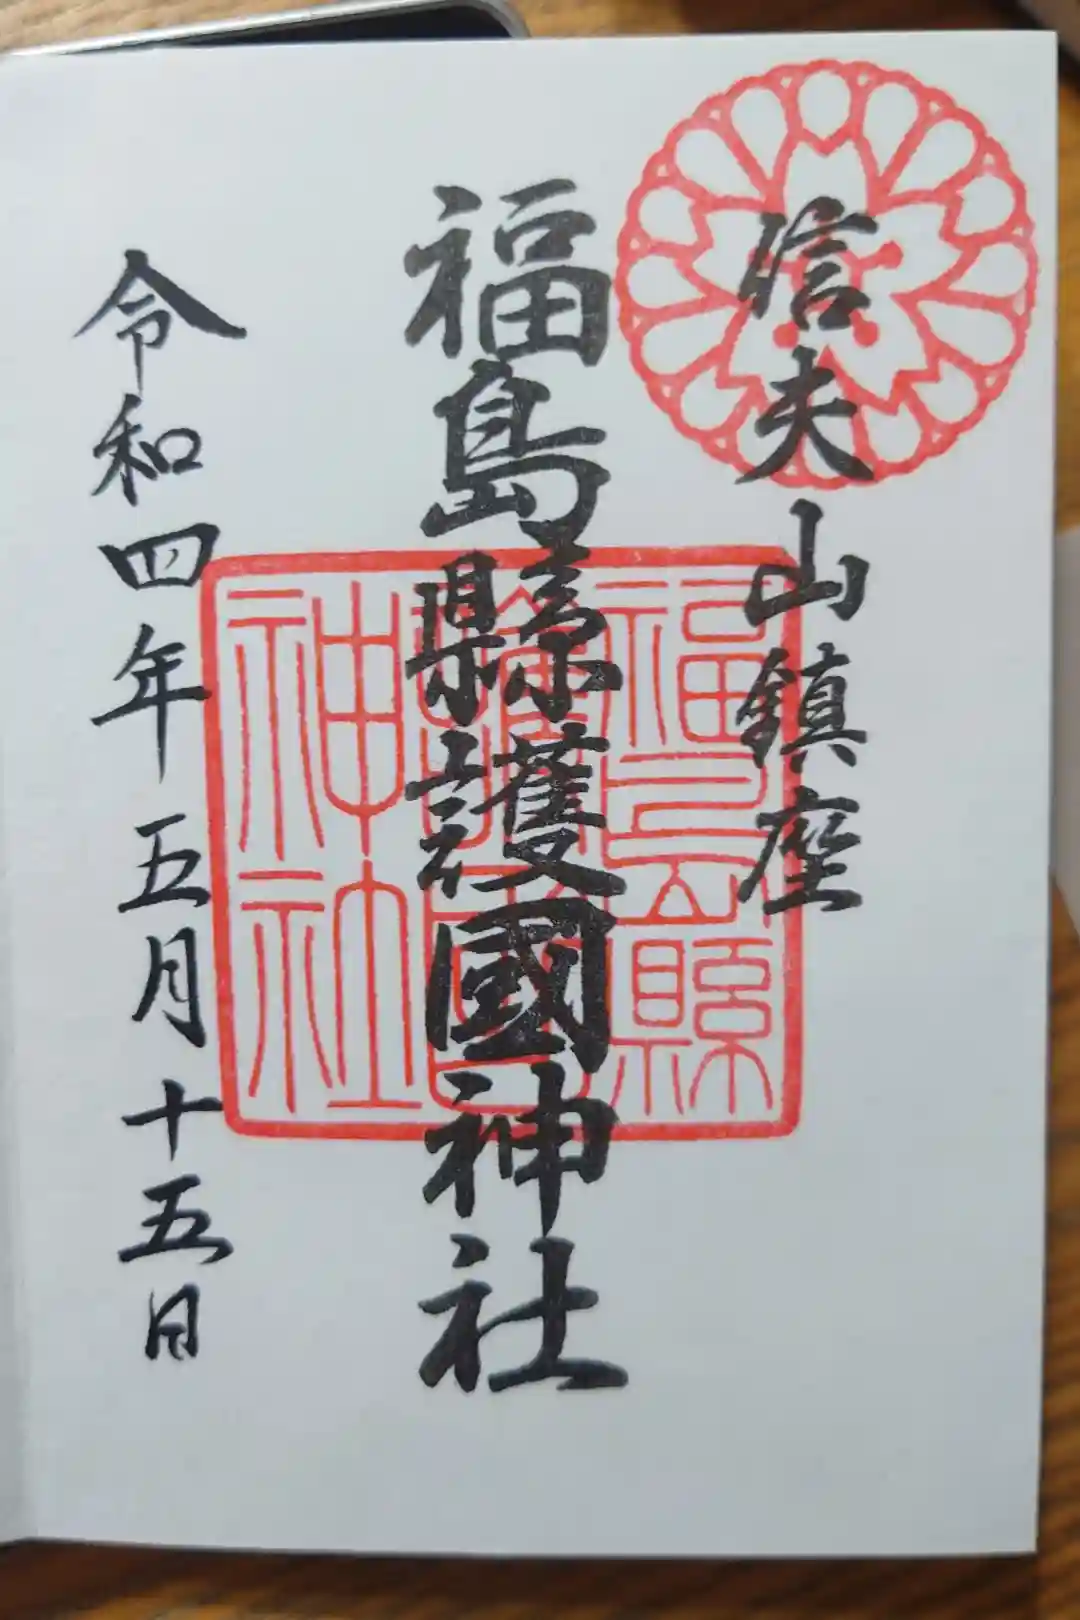 信夫山鎮座
福島縣護國神社
福島縣護國神社
令和四年五月十五日